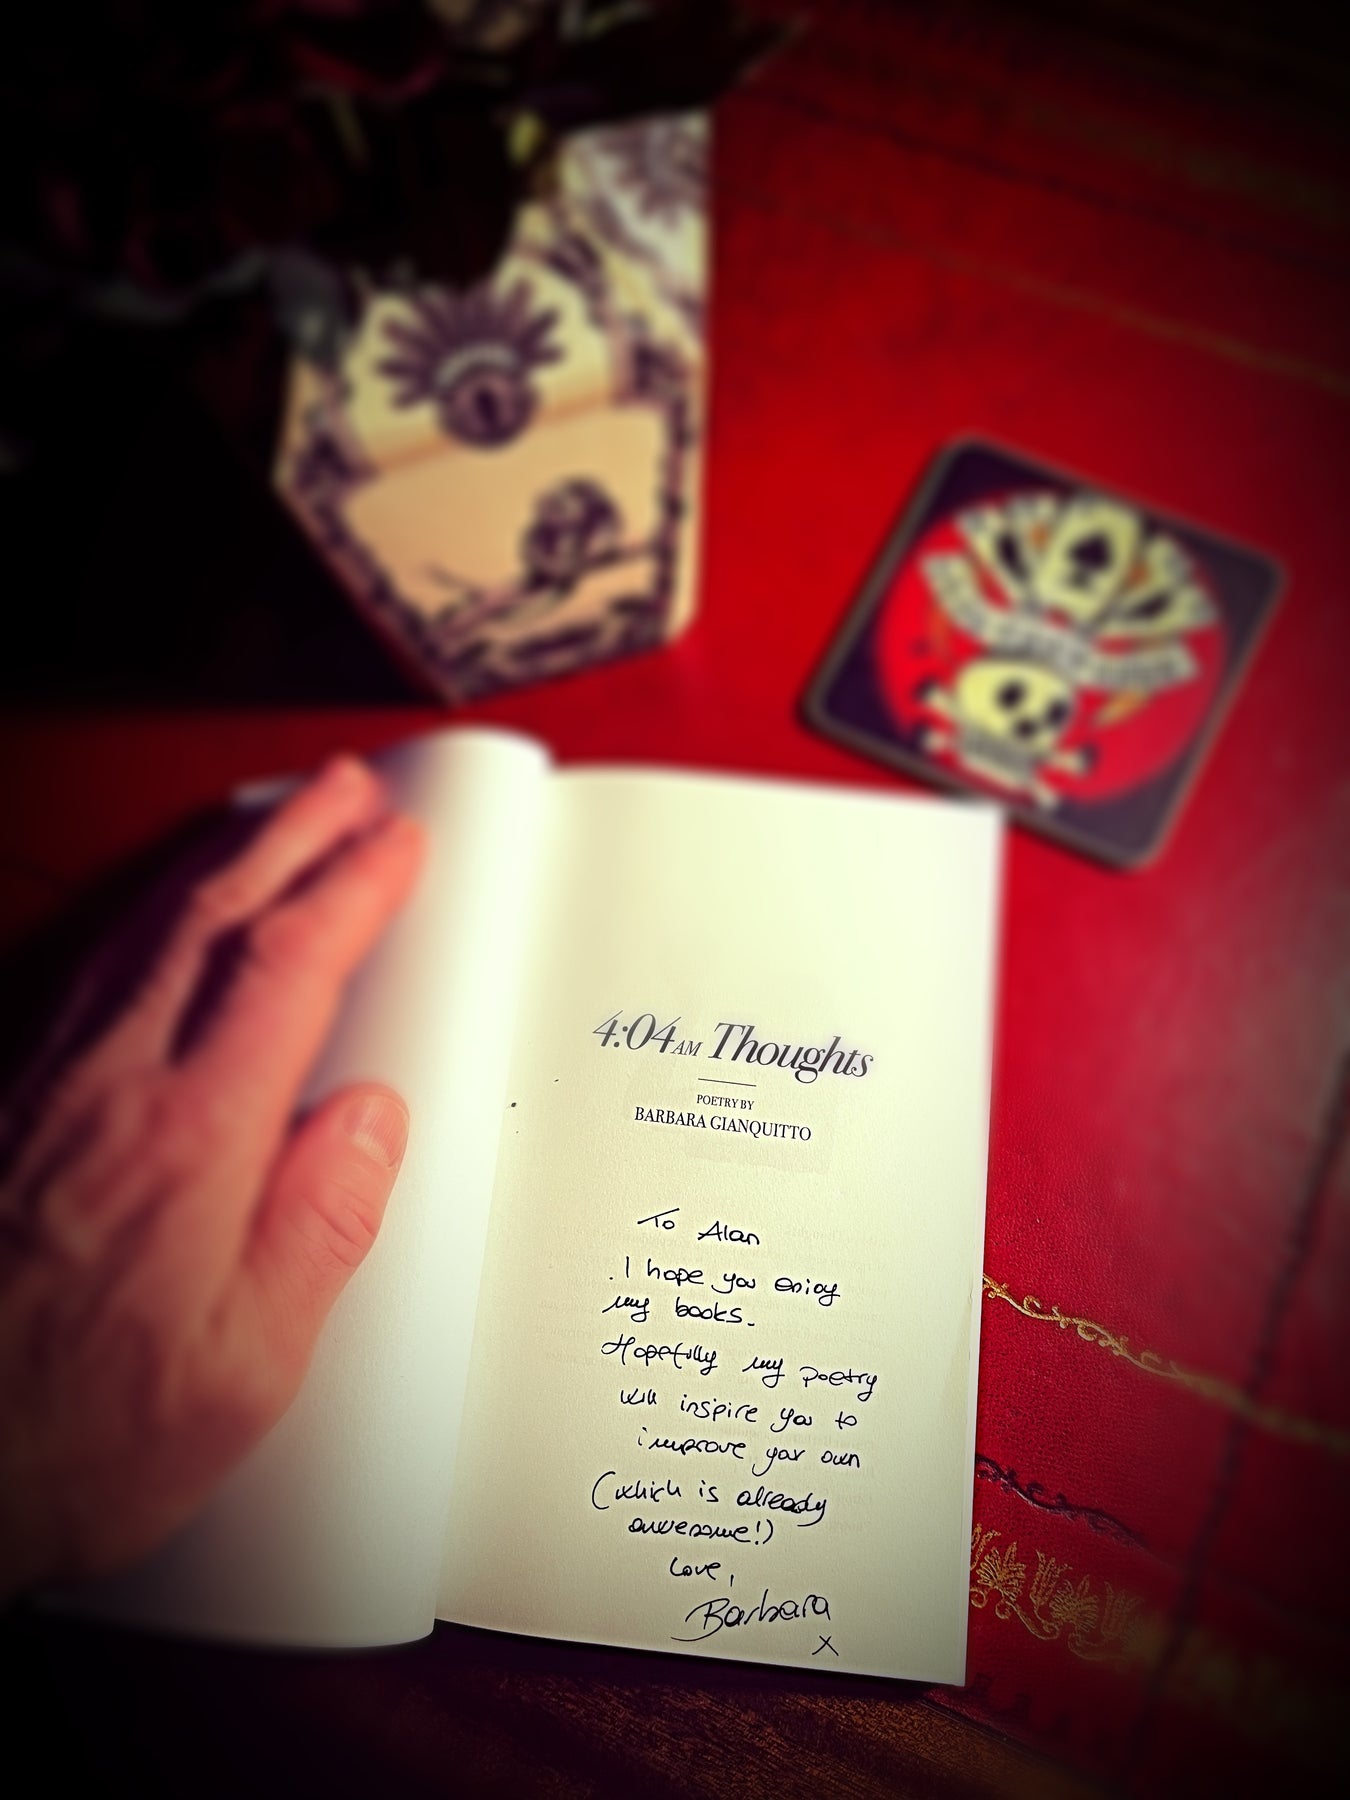 4:04 AM Thoughts
POETRY BY
BARBARA GIANQUITTO
To Alan
. I hope you enjoy
my books.
Hopefully my poetry
will inspire you to
improve your own
(which is already
awesome!)
Love,
Barbara
x